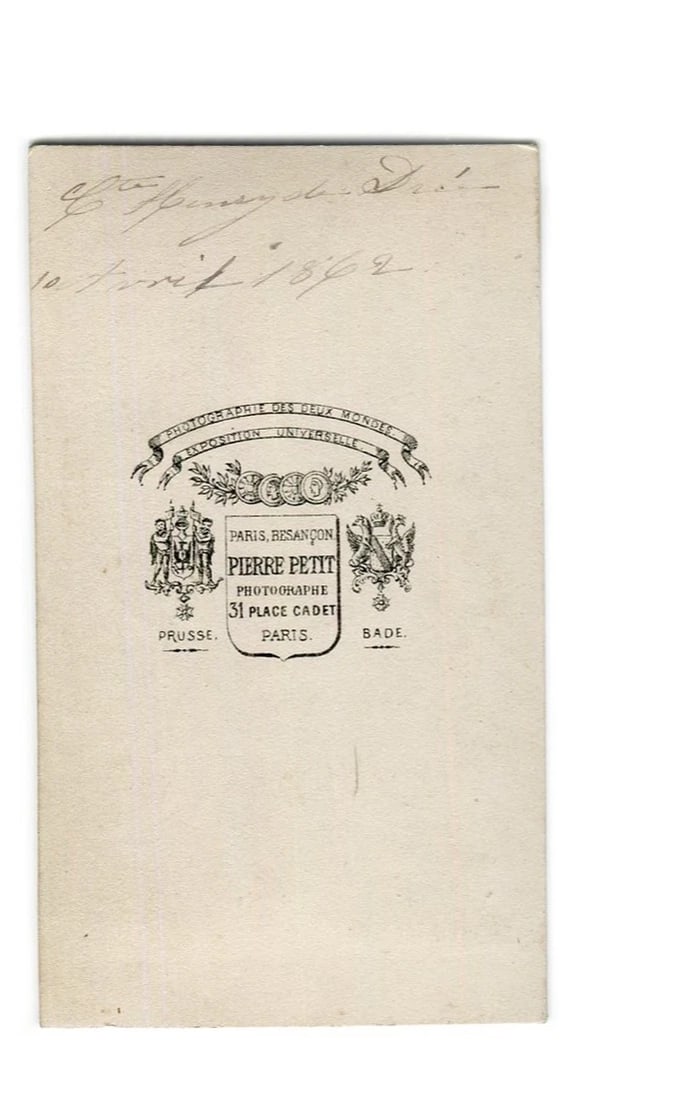 Cte Henry de Drée
10 Avril 1862
PHOTOGRAPHIE DES DEUX MONDES.
EXPOSITION UNIVERSELLE.
PARIS, BESANÇON,
PIERRE PETIT
PHOTOGRAPHE
31 PLACE CADET
PARIS.
PRUSSE.
BADE.